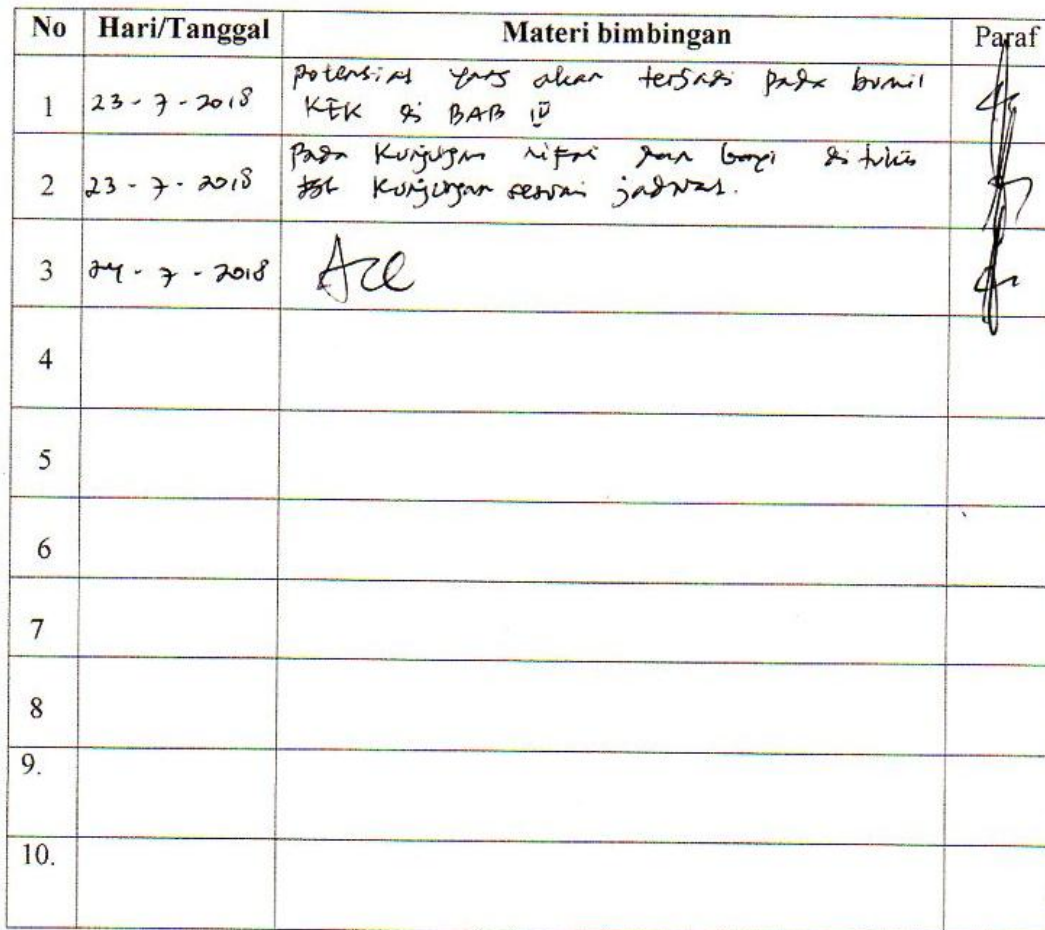 No Hari/Tanggal Materi bimbingan Paraf
1 23-7-2018 potensial yang akan terjadi pada bumil
KEK di BAB IV
2 23-7-2018 pada Kunjungan nifas dan bayi di tulis
tgl Kunjungan sesuai jadwal.
3 24-7-2018 Acc
4
5
6
7
8
9.
10.